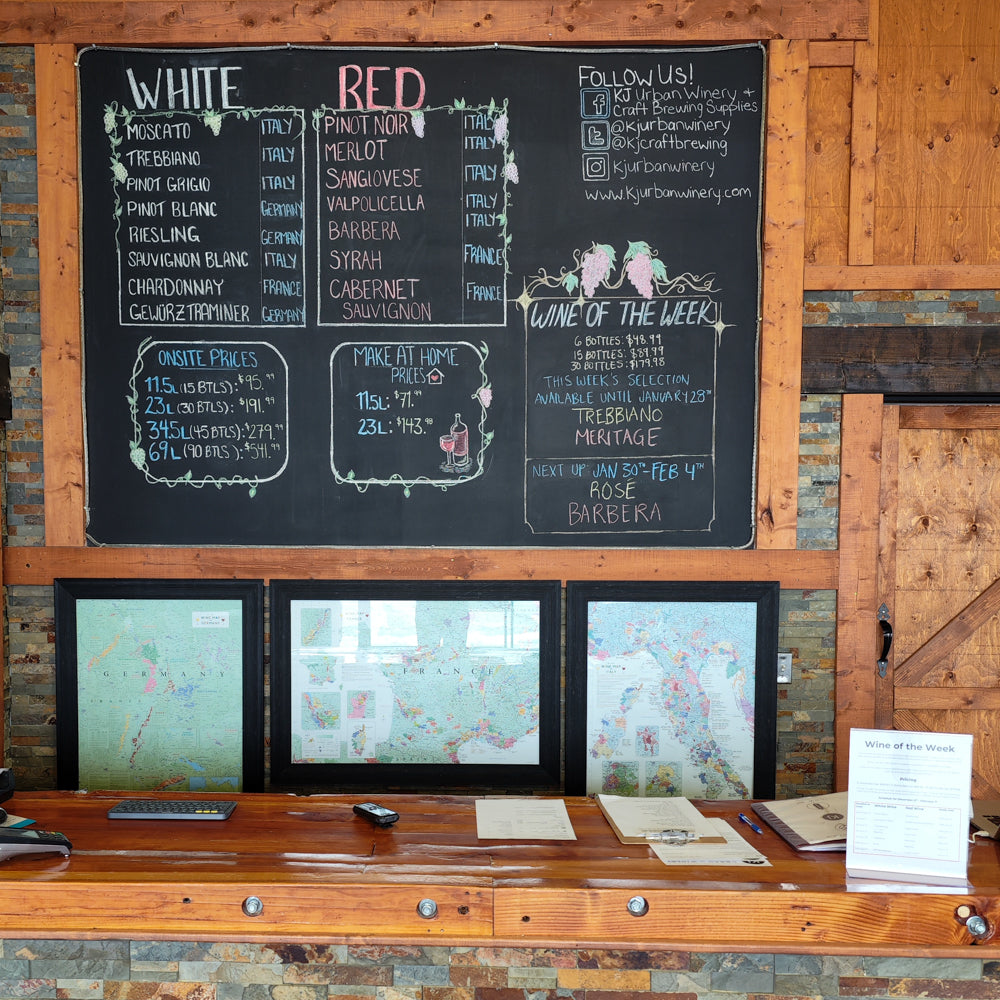 WHITE
MOSCATO ITALY
TREBBIANO ITALY
PINOT GRIGIO ITALY
PINOT BLANC GERMANY
RIESLING GERMANY
SAUVIGNON BLANC ITALY
CHARDONNAY FRANCE
GEWÜRZTRAMINER GERMANY
RED
PINOT NOIR ITALY
MERLOT ITALY
SANGIOVESE ITALY
VALPOLICELLA ITALY
BARBERA ITALY
SYRAH FRANCE
CABERNET FRANCE
SAUVIGNON
FOLLOW US!
KJ Urban Winery +
Craft Brewing Supplies
@kjurbanwinery
@kjcraftbrewing
kjurbanwinery
www.kjurbanwinery.com
ONSITE PRICES
11.5L (15 BTLS): $95.99
23L (30 BTLS): $191.99
34.5L (45 BTLS): $279.99
69L (90 BTLS): $541.99
MAKE AT HOME
PRICES
11.5L: $71.99
23L: $143.98
WINE OF THE WEEK
6 BOTTLES: $48.99
15 BOTTLES: $89.99
30 BOTTLES: $179.98
THIS WEEK'S SELECTION
AVAILABLE UNTIL JANUARY 28TH
TREBBIANO
MERITAGE
NEXT UP JAN 30TH - FEB 4TH
ROSÉ
BARBERA
WINE MAP
GERMANY
GERMANY
FRANCE
Wine of the Week
Pricing